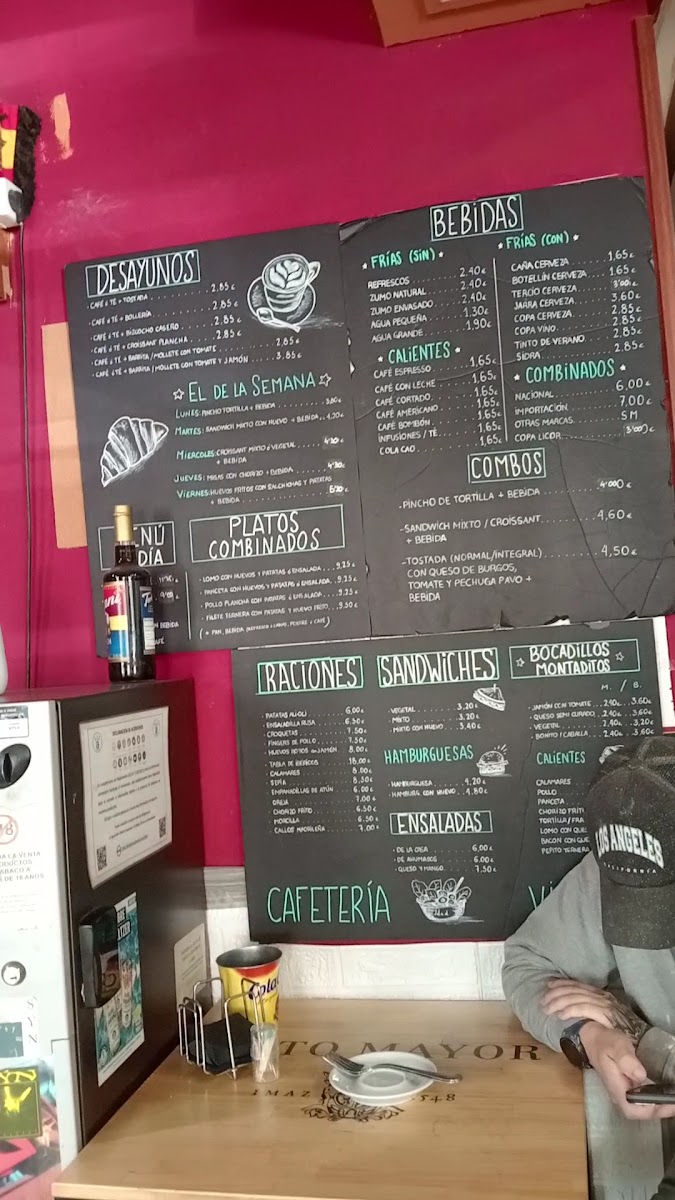 DESAYUNOS
· CAFÉ ó TÉ + TOSTADA 2,85€
· CAFÉ ó TÉ + BOLLERÍA 2,85€
· CAFÉ ó TÉ + BIZCOCHO CASERO 2.85€
· CAFÉ ó TÉ + CROISSANT PLANCHA 2.85€
· CAFÉ ó TÉ + BARRITA/MOLLETE CON TOMATE 2.85€
· CAFÉ ó TÉ + BARRITA/MOLLETE CON TOMATE Y JAMÓN 3.85€
EL DE LA SEMANA
LUNES: PINCHO TORTILLA + BEBIDA
MARTES: SANDWICH MIXTO CON HUEVO + BEBIDA 4,20€
MIERCOLES: CROISSANT MIXTO ó VEGETAL
+ BEBIDA
JUEVES: MIGAS CON CHORIZO + BEBIDA
VIERNES: HUEVOS FRITOS CON SALCHICHAS Y PATATAS
+ BEBIDA
PLATOS
COMBINADOS
· LOMO CON HUEVOS Y PATATAS ó ENSALADA 9,25€
· PANCETA CON HUEVOS Y PATATAS ó ENSALADA 9,25€
· POLLO PLANCHA CON PATATAS ó ENSALADA 9.25€
· FILETE TERNERA CON PATATAS Y HUEVO FRITO 9.50€
BEBIDAS
FRÍAS (SIN)
REFRESCOS 2.40€
ZUMO NATURAL 2.40€
ZUMO ENVASADO 2.40€
AGUA PEQUEÑA 1.30€
AGUA GRANDE 1.90€
CALIENTES
CAFÉ ESPRESSO 1,65€
CAFÉ CON LECHE 1,65€
CAFÉ CORTADO 1,65€
CAFÉ AMERICANO 1,65€
CAFÉ BOMBÓN 1,65€
INFUSIONES / TÉ 1,65€
COLA CAO 1,65€
FRÍAS (CON)
CAÑA CERVEZA 1,65€
BOTELLÍN CERVEZA 1,65€
TERCIO CERVEZA 3'00€
JARRA CERVEZA 3,60€
COPA CERVEZA 2.85€
COPA VINO 2.85€
TINTO DE VERANO 2.85€
SIDRA 2.85€
COMBINADOS
NACIONAL 6,00€
IMPORTACIÓN 7,00€
OTRAS MARCAS S M
COPA LICOR 3'00€
COMBOS
-PINCHO DE TORTILLA + BEBIDA
-SANDWICH MIXTO / CROISSANT 4,60€
+ BEBIDA
-TOSTADA (NORMAL/INTEGRAL) 4,50€
CON QUESO DE BURGOS,
TOMATE Y PECHUGA PAVO +
BEBIDA
RACIONES
· PATATAS ALI-OLI 6,00€
· ENSALADILLA RUSA 6.50€
· CROQUETAS 7.50€
· FINGERS DE POLLO 7.50€
· HUEVOS ROTOS con JAMÓN 8.00€
· TABLA DE IBÉRICOS 18,00€
· CALAMARES 8.00€
· SEPIA 8,50€
· EMPANADILLAS DE ATÚN 6.00€
· OREJA 7,00€
· CHORIZO FRITO 6.50€
· MORCILLA 6.50€
· CALLOS MADRILEÑA 7,00€
CAFETERÍA
SANDWICHES
· VEGETAL 3,20€
· MIXTO 3.20€
· MIXTO CON HUEVO 3.40€
HAMBURGUESAS
· HAMBURGUESA 4.20€
· HAMBURG. CON HUEVO 4.80€
ENSALADAS
· DE LA CASA 6,00€
· DE AHUMADOS 6.00€
· QUESO Y MANGO 7.50€
BOCADILLOS
MONTADITOS
M. / B.
· JAMÓN CON TOMATE 2,40€ 3.60€
· QUESO SEMI CURADO 2,40€ 3,60€
· VEGETAL 2,40€ 3,20€
· BONITO / CABALLA 2.40€ 3.60€
CALIENTES
CALAMARES
POLLO
PANCETA
CHORIZO FRITO
TORTILLA/FRA
LOMO CON QUE
BACON CON QUE
PEPITO TERNERA
LOS ANGELES
CALIFORNIA
TO MAYOR